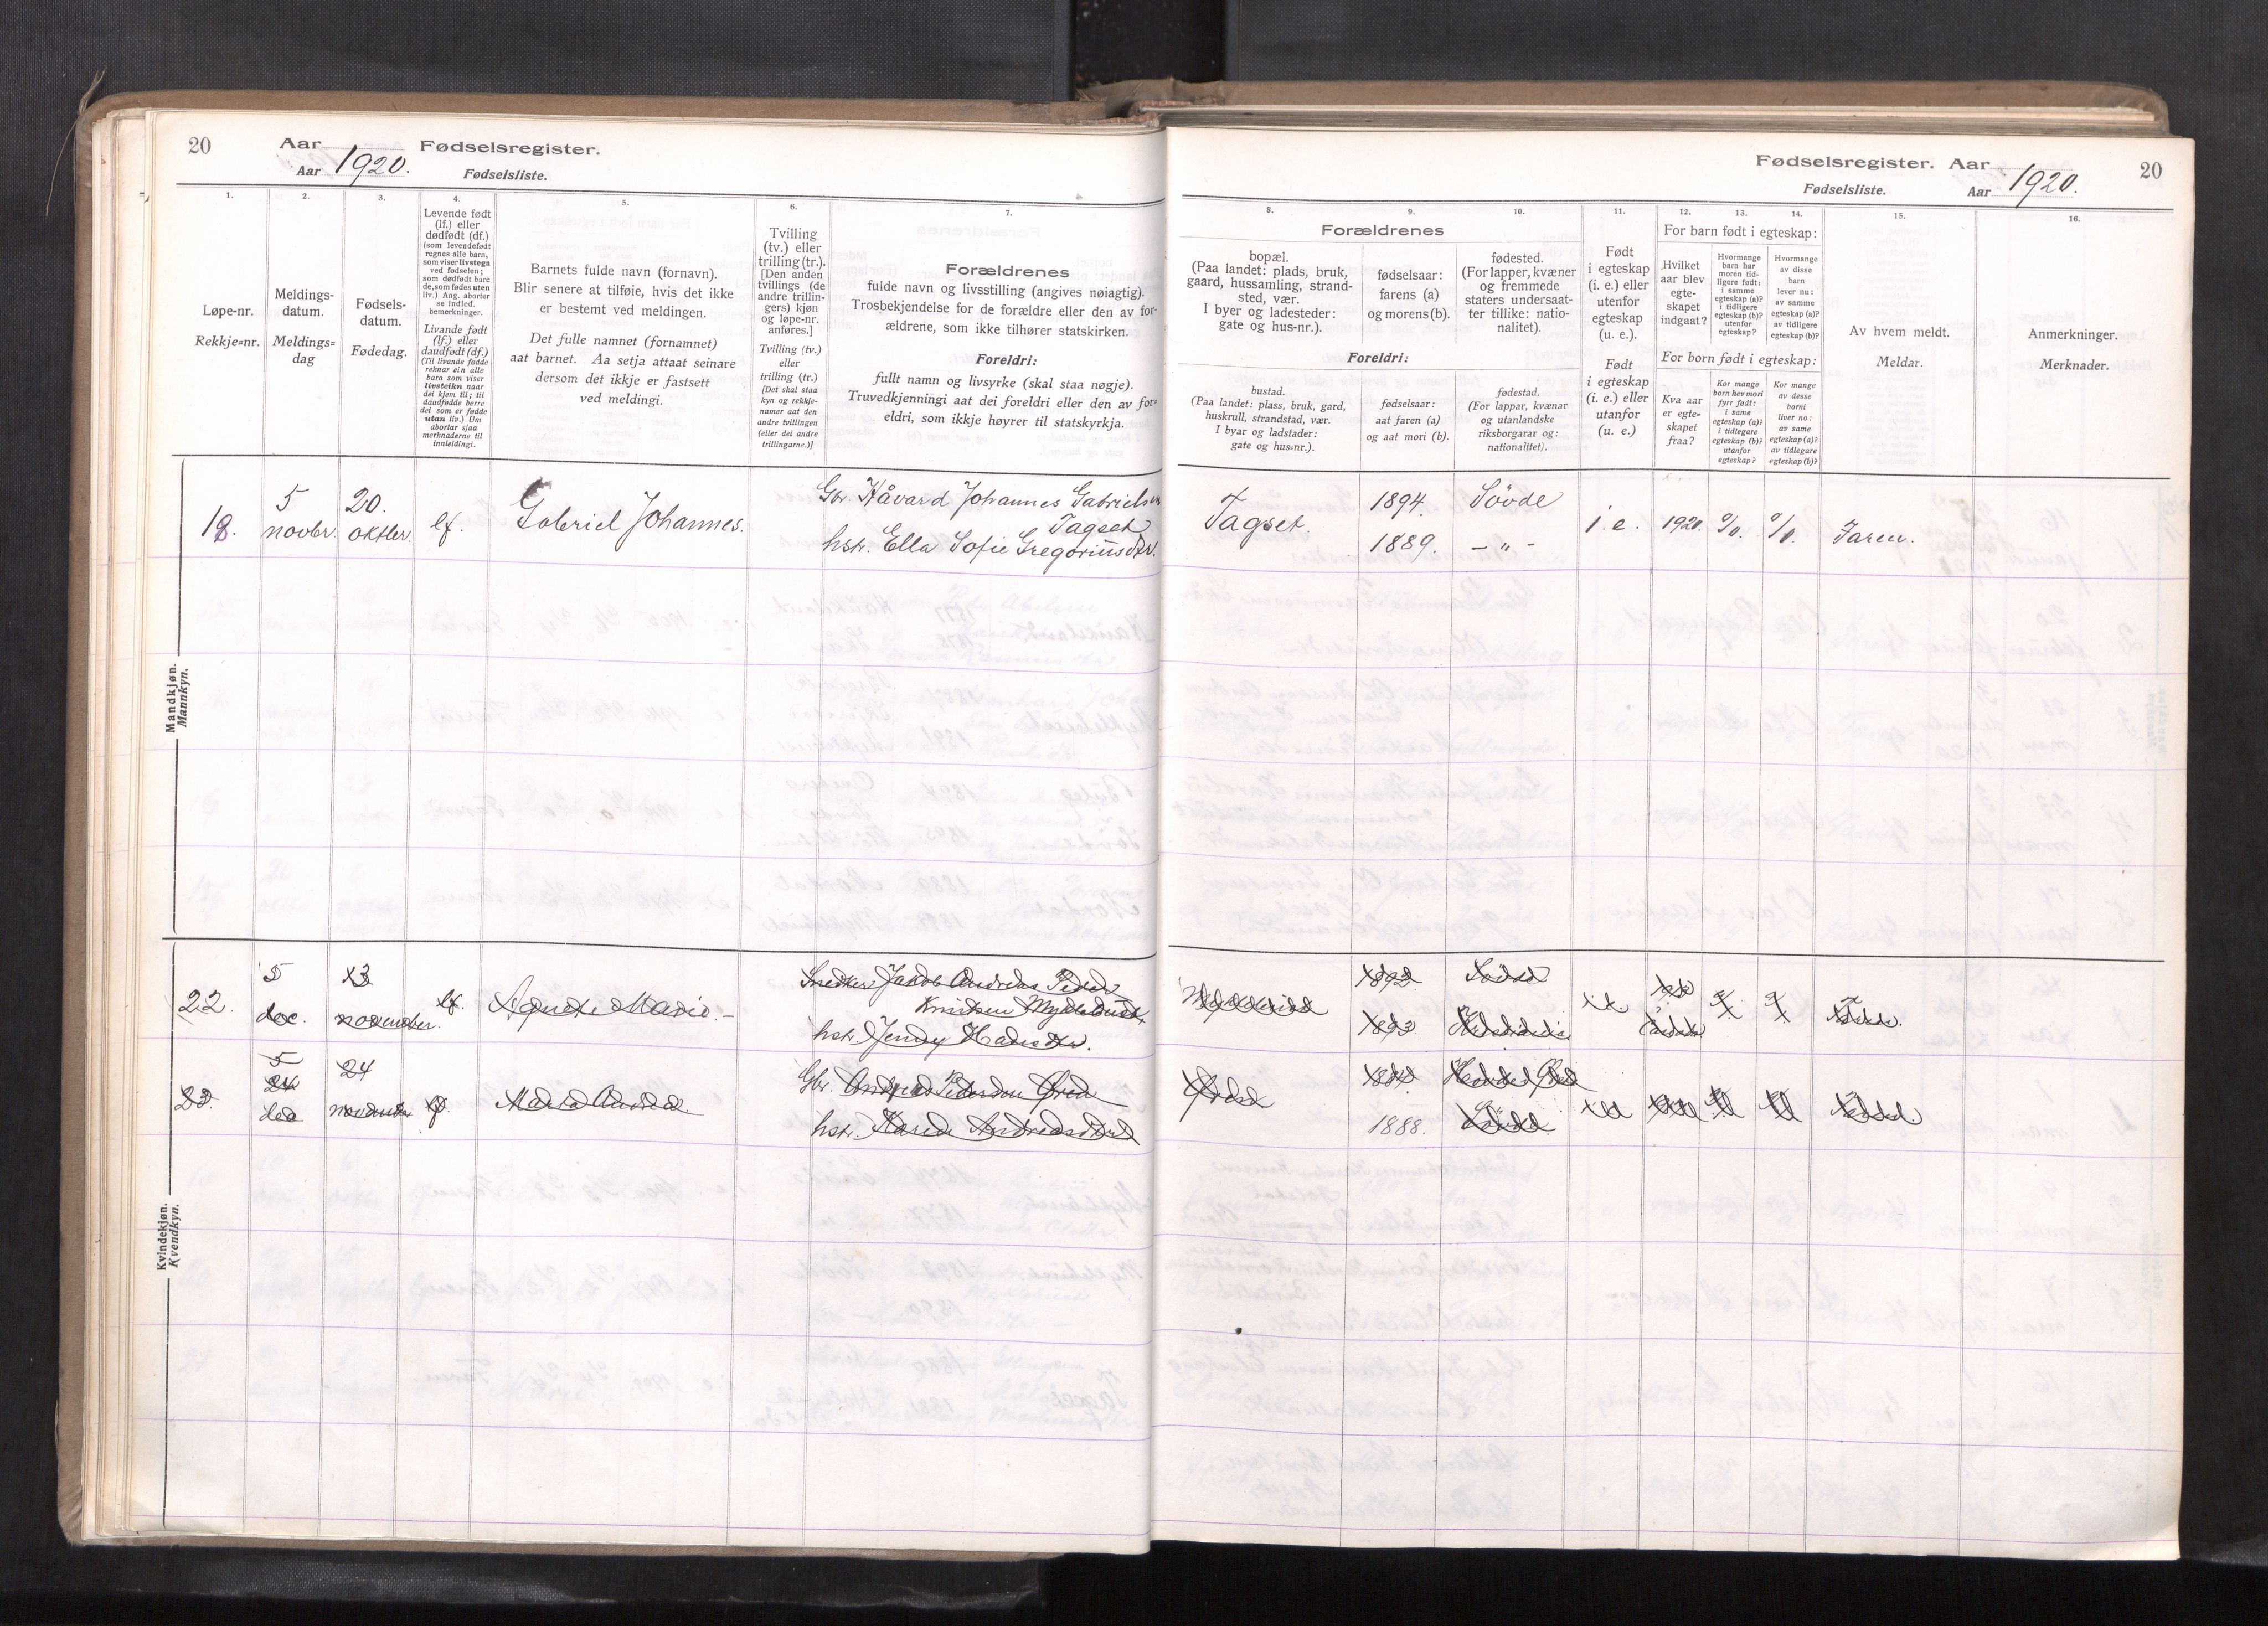 20
Aar
Fødselsregister.
Aar 1920.
Fødselsliste.
1.
2.
3.
4.
5.
6.
7.
Løpe-nr.
Rekkje=nr.
Meldings-
datum.
Meldings=
dag
Fødsels-
datum.
Fødedag.
Levende født
(lf.) eller
dødfødt (df.)
(som levendefødt
regnes alle barn,
som viser livstegn
ved fødselen;
som dødfødt bare
de, som fødes uten
liv.) Ang. aborter
se indled.
bemerkninger.
Livande født
(lf.) eller
daudfødt (df.)
(Til livande fødde
reknar ein alle
barn som viser
livsteikn naar
dei kjem til; til
daudfødde berre
dei som er fødde
utan liv.) Um
abortar sjaa
merknaderne til
innleidingi.
Barnets fulde navn (fornavn).
Blir senere at tilføie, hvis det ikke
er bestemt ved meldingen.
Det fulle namnet (fornamnet)
aat barnet. Aa setja attaat seinare
dersom det ikkje er fastsett
ved meldingi.
Tvilling
(tv.) eller
trilling (tr.).
[Den anden
tvillings (de
andre trillin-
gers) kjøn
og løpe-nr.
anføres.]
Tvilling (tv.)
eller
trilling (tr.)
[Det skal staa
kyn og rekkje-
numer aat den
andre tvillingen
(eller dei andre
trillingarne.)]
Forældrenes
fulde navn og livsstilling (angives nøiagtig).
Trosbekjendelse for de forældre eller den av for-
ældrene, som ikke tilhører statskirken.
Foreldri:
fullt namn og livsyrke (skal staa nøgje).
Truvedkjenningi aat dei foreldri eller den av for=
eldri, som ikkje høyrer til statskyrkja.
Mandkjøn.
Mannkyn.
18.
5
novbr.
20.
oktbr.
lf.
Gabriel Johannes.
Gbr. Håvard Johannes Gabrielsen
Tagset
hstr. Ella Sofie Gregoriusdtr.
Kvindekjøn.
Kvendkyn.
22.
5
dec.
13
november.
lf.
Agnete Marie.
Snedker Jakob Andreas Peder
Knutsen Myklebust
hstr. Jenny Hansdtr.
23.
5
dec
24
november
lf.
Gbr. Andreas Pedersen
hstr. Karen Andreasdtr
Fødselsregister. Aar
20
Fødselsliste.
Aar 1920.
8.
9.
10.
11.
12.
13.
14.
15.
16.
Forældrenes
bopæl.
(Paa landet: plads, bruk,
gaard, hussamling, strand-
sted, vær.
I byer og ladesteder:
gate og hus-nr.).
fødselsaar:
farens (a)
og morens (b).
fødested.
(For lapper, kvæner
og fremmede
staters undersaat-
ter tillike: natio-
nalitet).
Foreldri:
bustad.
(Paa landet: plass, bruk, gard,
huskrull, strandstad, vær.
I byar og ladstader:
gate og hus=nr.).
fødselsaar:
aat faren (a)
og aat mori (b).
fødestad.
(For lappar, kvænar
og utanlandske
riksborgarar og:
nationalitet).
Født
i egteskap
(i. e.) eller
utenfor
egteskap
(u. e.).
Født
i egteskap
(i. e.) eller
utanfor
(u. e.)
For barn født i egteskap:
Hvilket
aar blev
egte-
skapet
indgaat?
Hvormange
barn har
moren tid-
ligere født:
i samme
egteskap (a)?
i tidligere
egteskap (b)?
utenfor
egteskap?
Hvormange
av disse
barn
lever nu:
av samme
egteskap (a)?
av tidligere
egteskap (b)?
For born født i egteskap:
Kva aar
er egte=
skapet
fraa?
Kor mange
born hev mori
fyrr født:
i same
egteskap (a)?
i tidlegare
egteskap (b)?
utanfor
egteskap?
Kor mange
av desse
borni
liver no:
av same
egteskap (a)?
av tidlegare
egteskap (b)?
Av hvem meldt.
Meldar.
Anmerkninger.
Merknader.
Tagset.
1894.
1889.
Søvde
— " —
i. e.
1920.
0/0.
0/0.
Faren.
1892
1888.